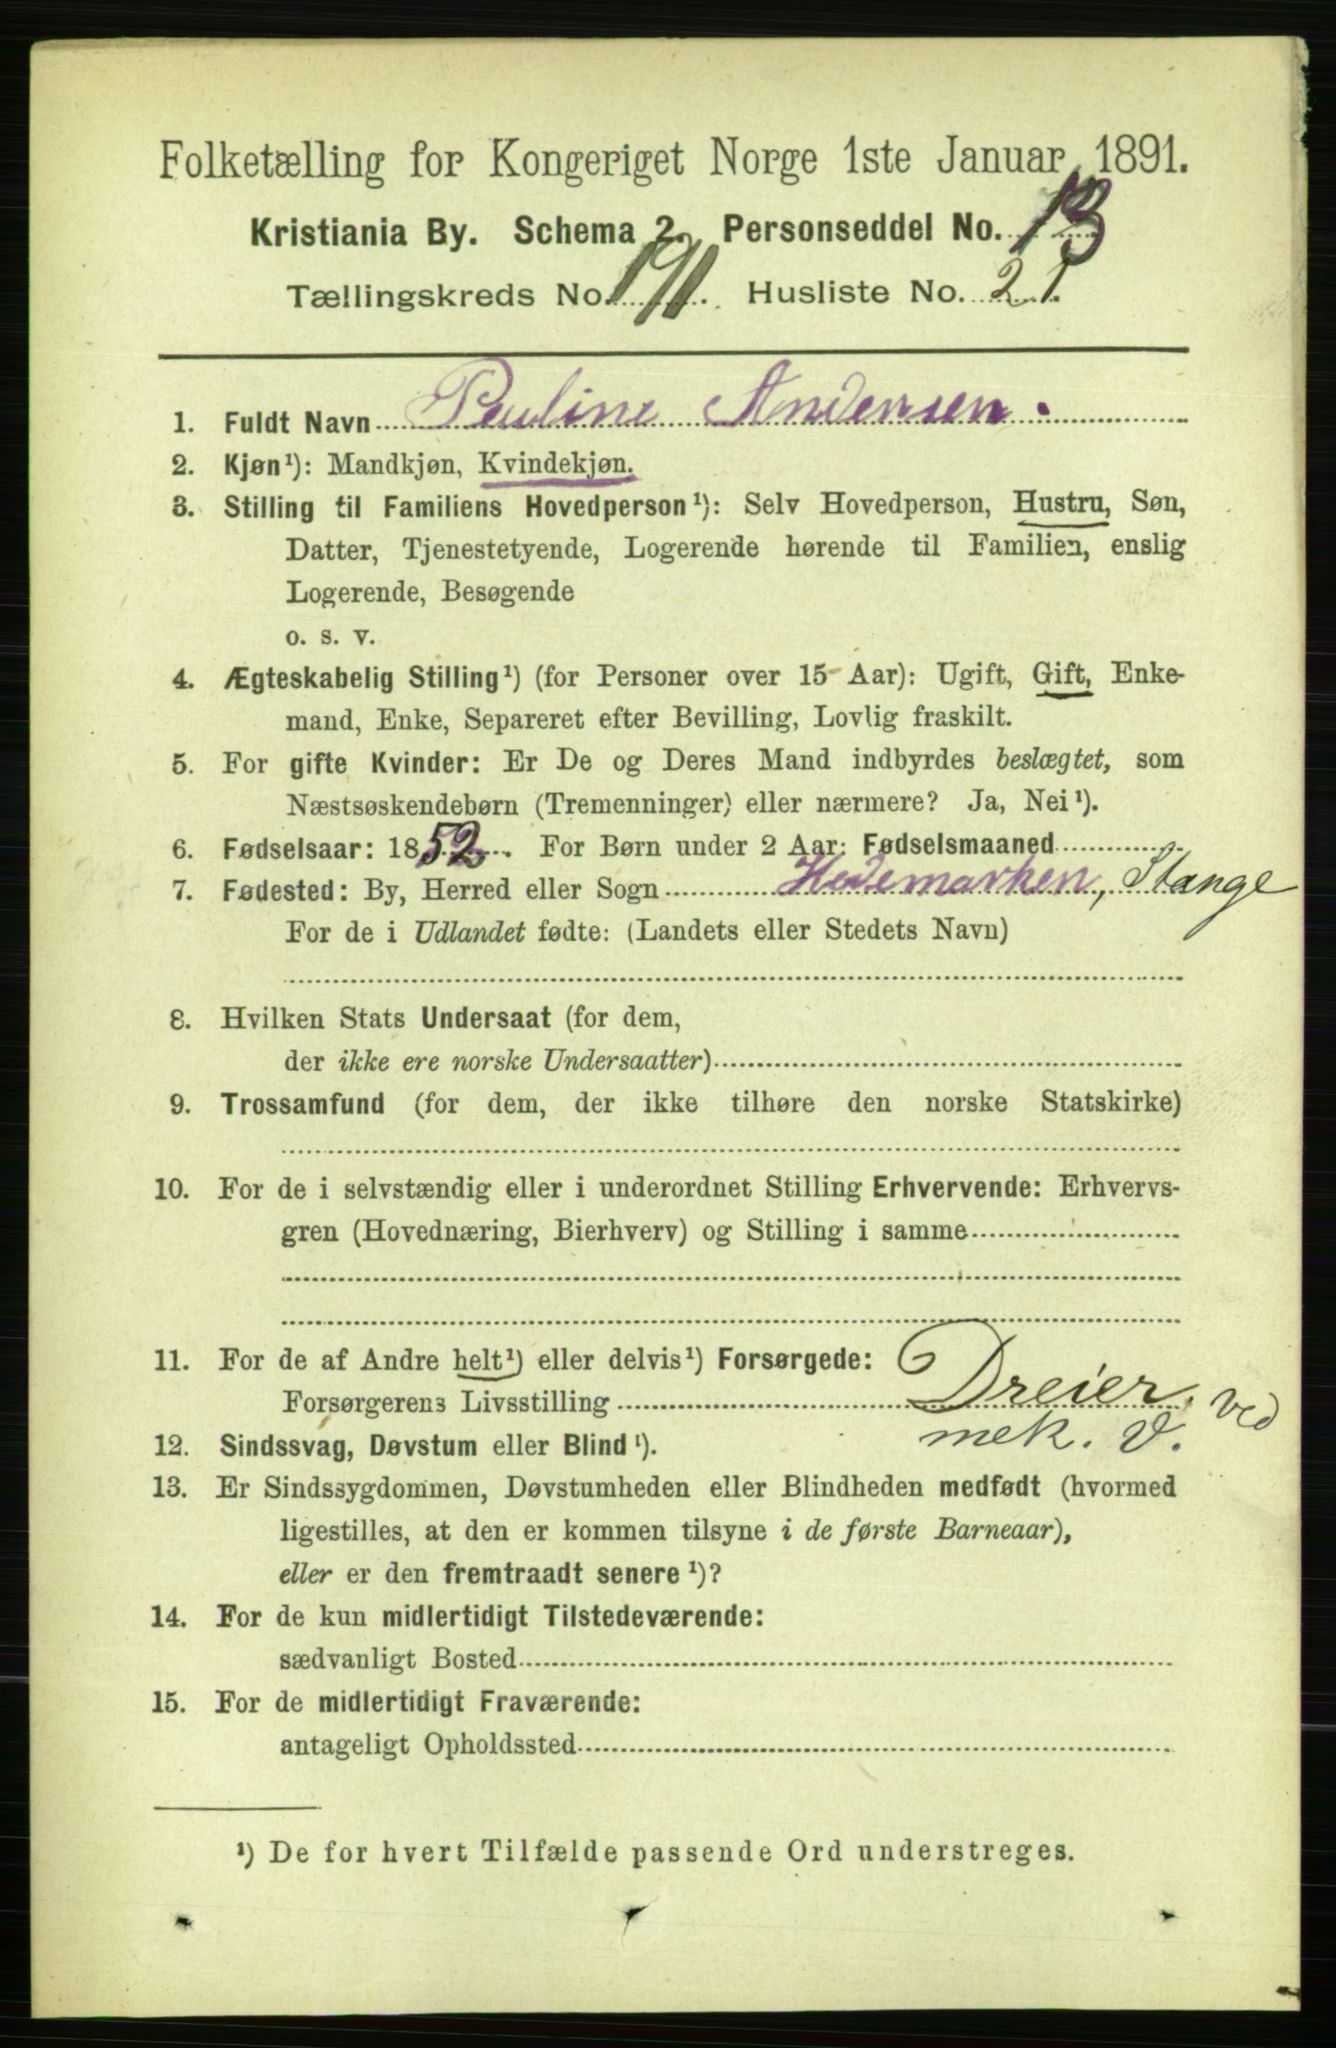 Folketælling for Kongeriget Norge 1ste Januar 1891.
Kristiania By. Schema 2. Personseddel No. 13
Tællingskreds No. 191. Husliste No. 21.
1. Fuldt Navn Pauline Andersen.
2. Kjøn¹): Mandkjøn, Kvindekjøn.
3. Stilling til Familiens Hovedperson¹): Selv Hovedperson, Hustru, Søn,
Datter, Tjenestetyende, Logerende hørende til Familien, enslig
Logerende, Besøgende
o. s. v.
4. Ægteskabelig Stilling¹) (for Personer over 15 Aar): Ugift, Gift, Enke-
mand, Enke, Separeret efter Bevilling, Lovlig fraskilt.
5. For gifte Kvinder: Er De og Deres Mand indbyrdes beslægtet, som
Næstsøskendebørn (Tremenninger) eller nærmere? Ja, Nei¹).
6. Fødselsaar: 1852. For Børn under 2 Aar: Fødselsmaaned
7. Fødested: By, Herred eller Sogn Hedemarken, Stange
For de i Udlandet fødte: (Landets eller Stedets Navn)
8. Hvilken Stats Undersaat (for dem,
der ikke ere norske Undersaatter)
9. Trossamfund (for dem, der ikke tilhøre den norske Statskirke)
10. For de i selvstændig eller i underordnet Stilling Erhvervende: Erhvervs-
gren (Hovednæring, Bierhverv) og Stilling i samme
11. For de af Andre helt¹) eller delvis¹) Forsørgede:
Forsørgerens Livsstilling Dreier ved
mek. V.
12. Sindssvag, Døvstum eller Blind¹).
13. Er Sindssygdommen, Døvstumheden eller Blindheden medfødt (hvormed
ligestilles, at den er kommen tilsyne i de første Barneaar),
eller er den fremtraadt senere¹)?
14. For de kun midlertidigt Tilstedeværende:
sædvanligt Bosted
15. For de midlertidigt Fraværende:
antageligt Opholdssted
¹) De for hvert Tilfælde passende Ord understreges.